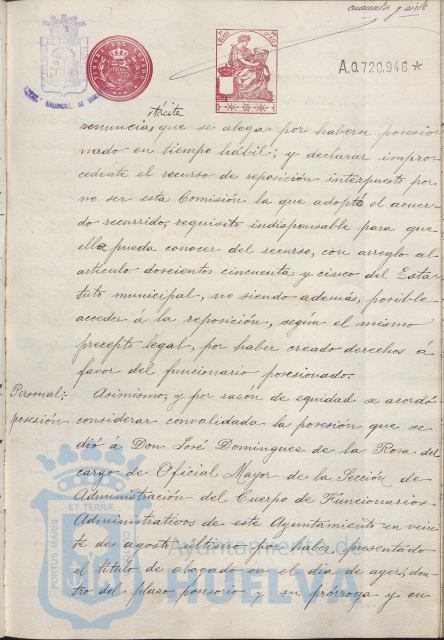 cuarenta y siete
A.0.720,946*
tácita
renuncia, que se alega por haberse posesio-
nado en tiempo hábil; y declarar impro-
cedente el recurso de reposición interpuesto por
no ser esta Comisión la que adoptó el acuer-
do recurrido, requisito indispensable para que
ella pueda conocer del recurso, con arreglo al
artículo doscientos cincuenta y cinco del Esta-
tuto municipal, no siendo además, posible
acceder á la reposición, según el mismo
precepto legal, por haber creado derechos á
favor del funcionario posesionado.
Personal:
posesión
Asimismo, y por razón de equidad se acordó
considerar convalidada la posesión que se
dió á Don José Dominguez de la Rosa del
cargo de Oficial Mayor de la Sección de
Administración del Cuerpo de Funcionarios
Administrativos de este Ayuntamiento en vein-
te de agosto último por haber presentado
el título de abogado en el día de ayer, den-
tro del plazo posesorio y su prórroga y en
PORTUS MARIS
ET TERRÆ
Ayuntamiento de
HUELVA